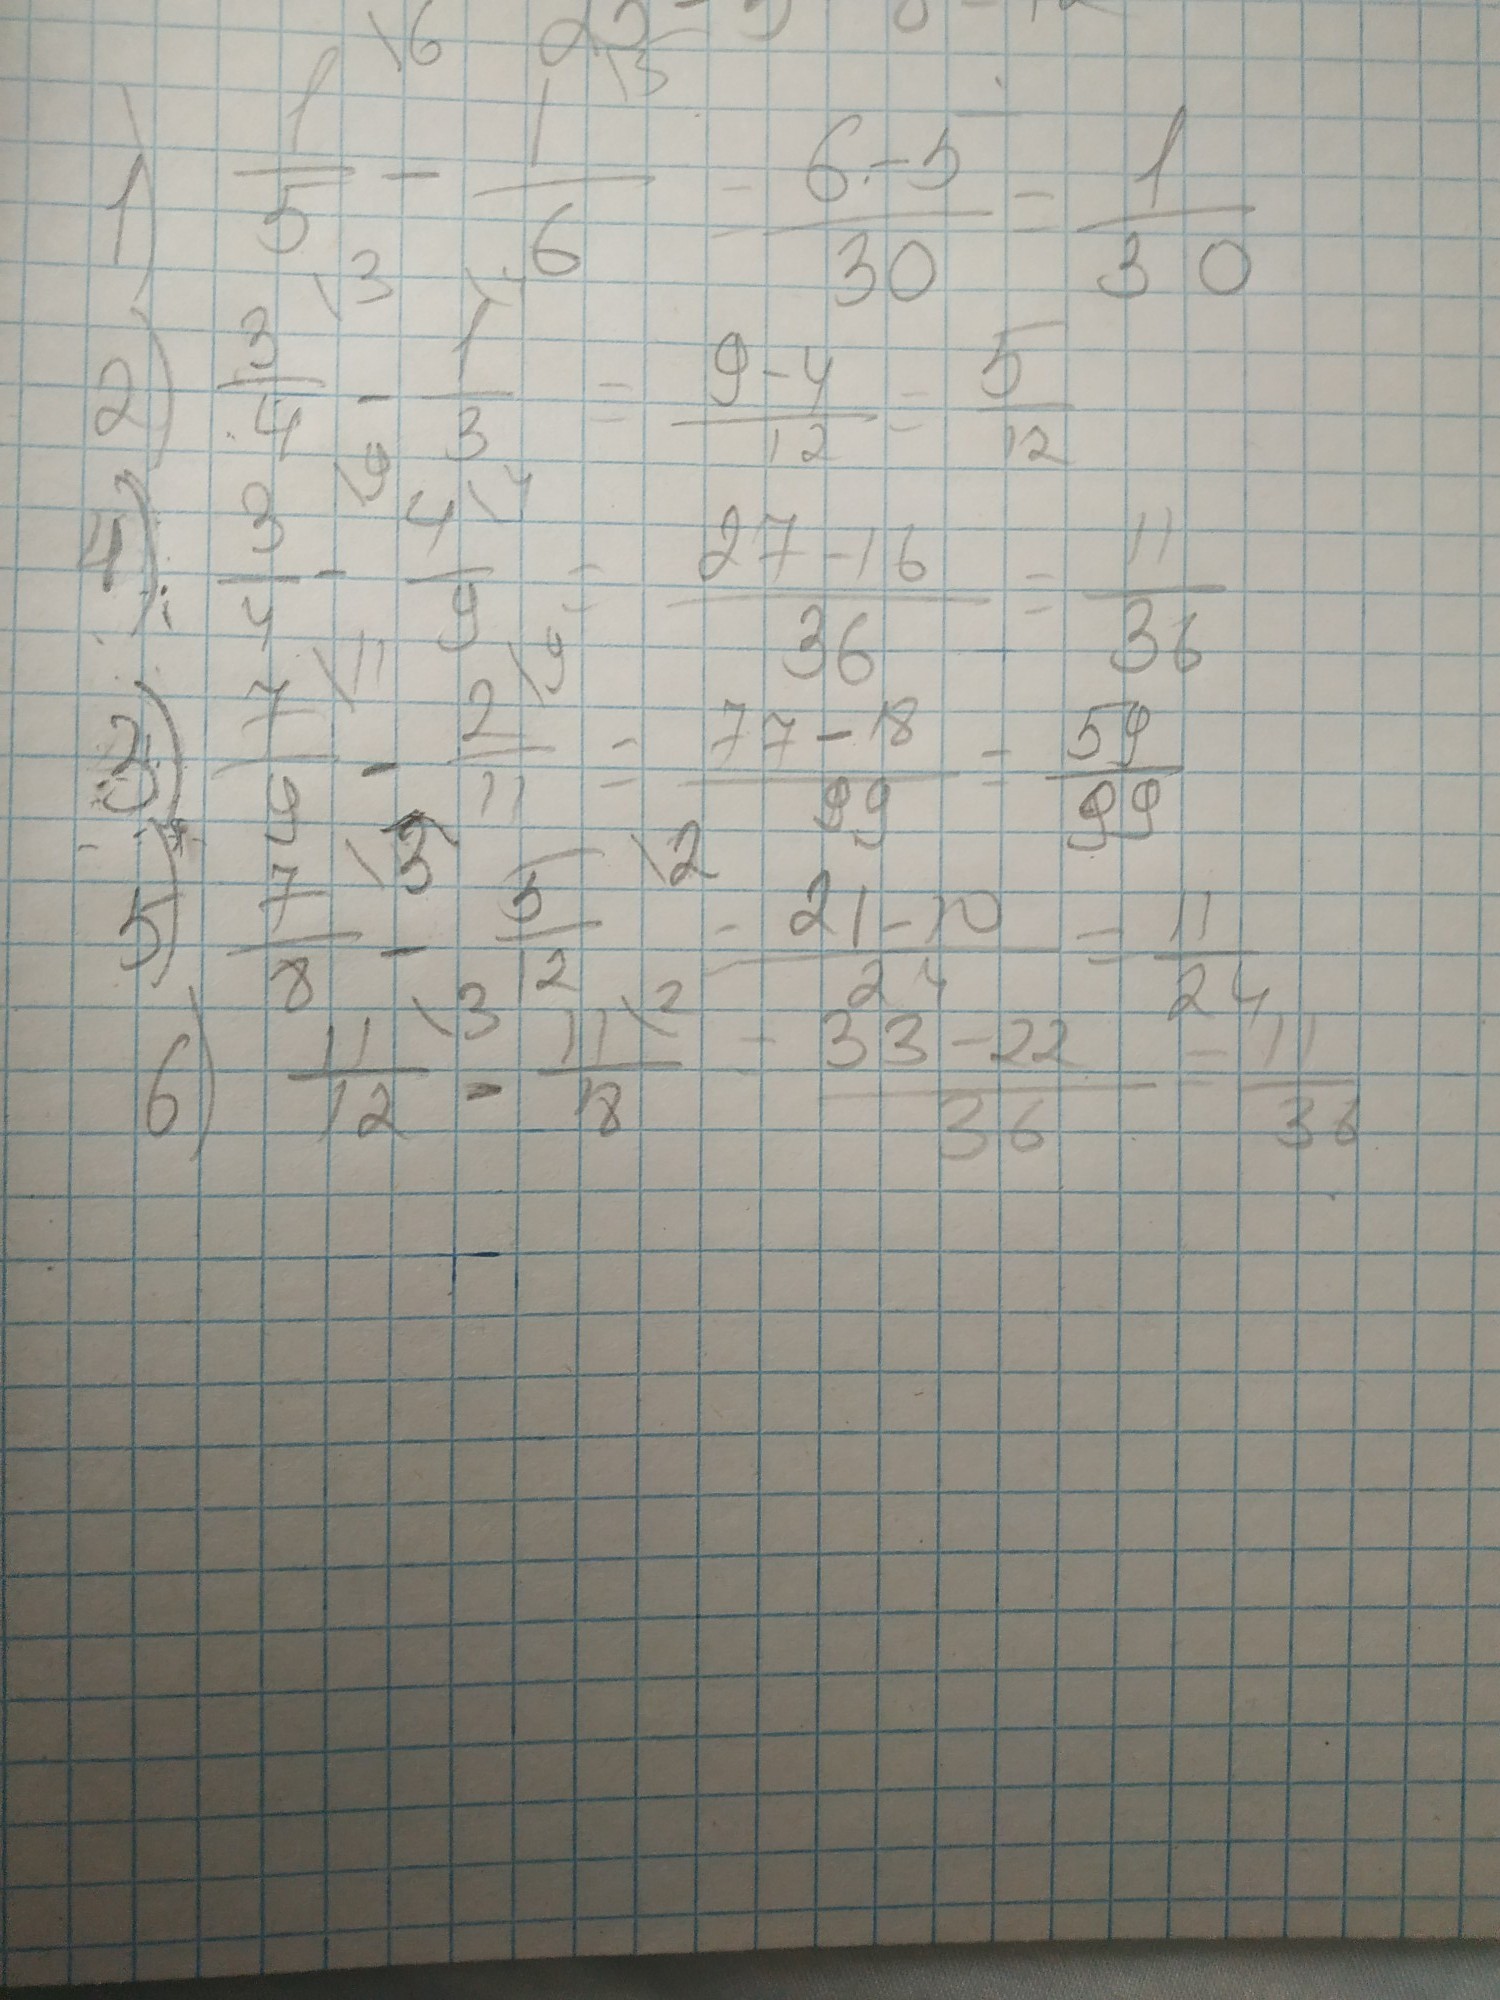 1) 1/5 \6 - 1/6 \5 = 6-5/30 = 1/30
2) 3/4 \3 - 1/3 \4 = 9-4/12 = 5/12
4) 3/4 \9 - 4/9 \4 = 27-16/36 = 11/36
3) 7/9 \11 - 2/11 \9 = 77-18/99 = 59/99
5) 7/8 \3 - 5/12 \2 = 21-10/24 = 11/24
6) 11/12 \3 - 11/18 \2 = 33-22/36 = 11/36